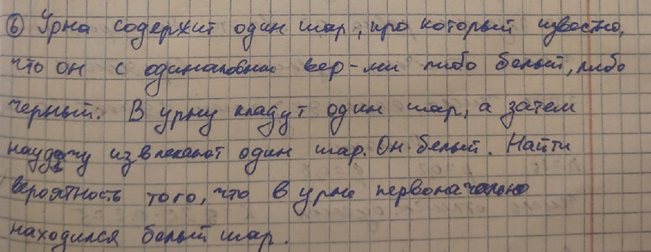 ⑥ Урна содержит один шар, про который известно,
что он с одинаковыми вер-ми либо белый, либо
черный. В урну кладут один шар, а затем
наудачу извлекают один шар. Он белый. Найти
вероятность того, что в урне первоначально
находился белый шар.